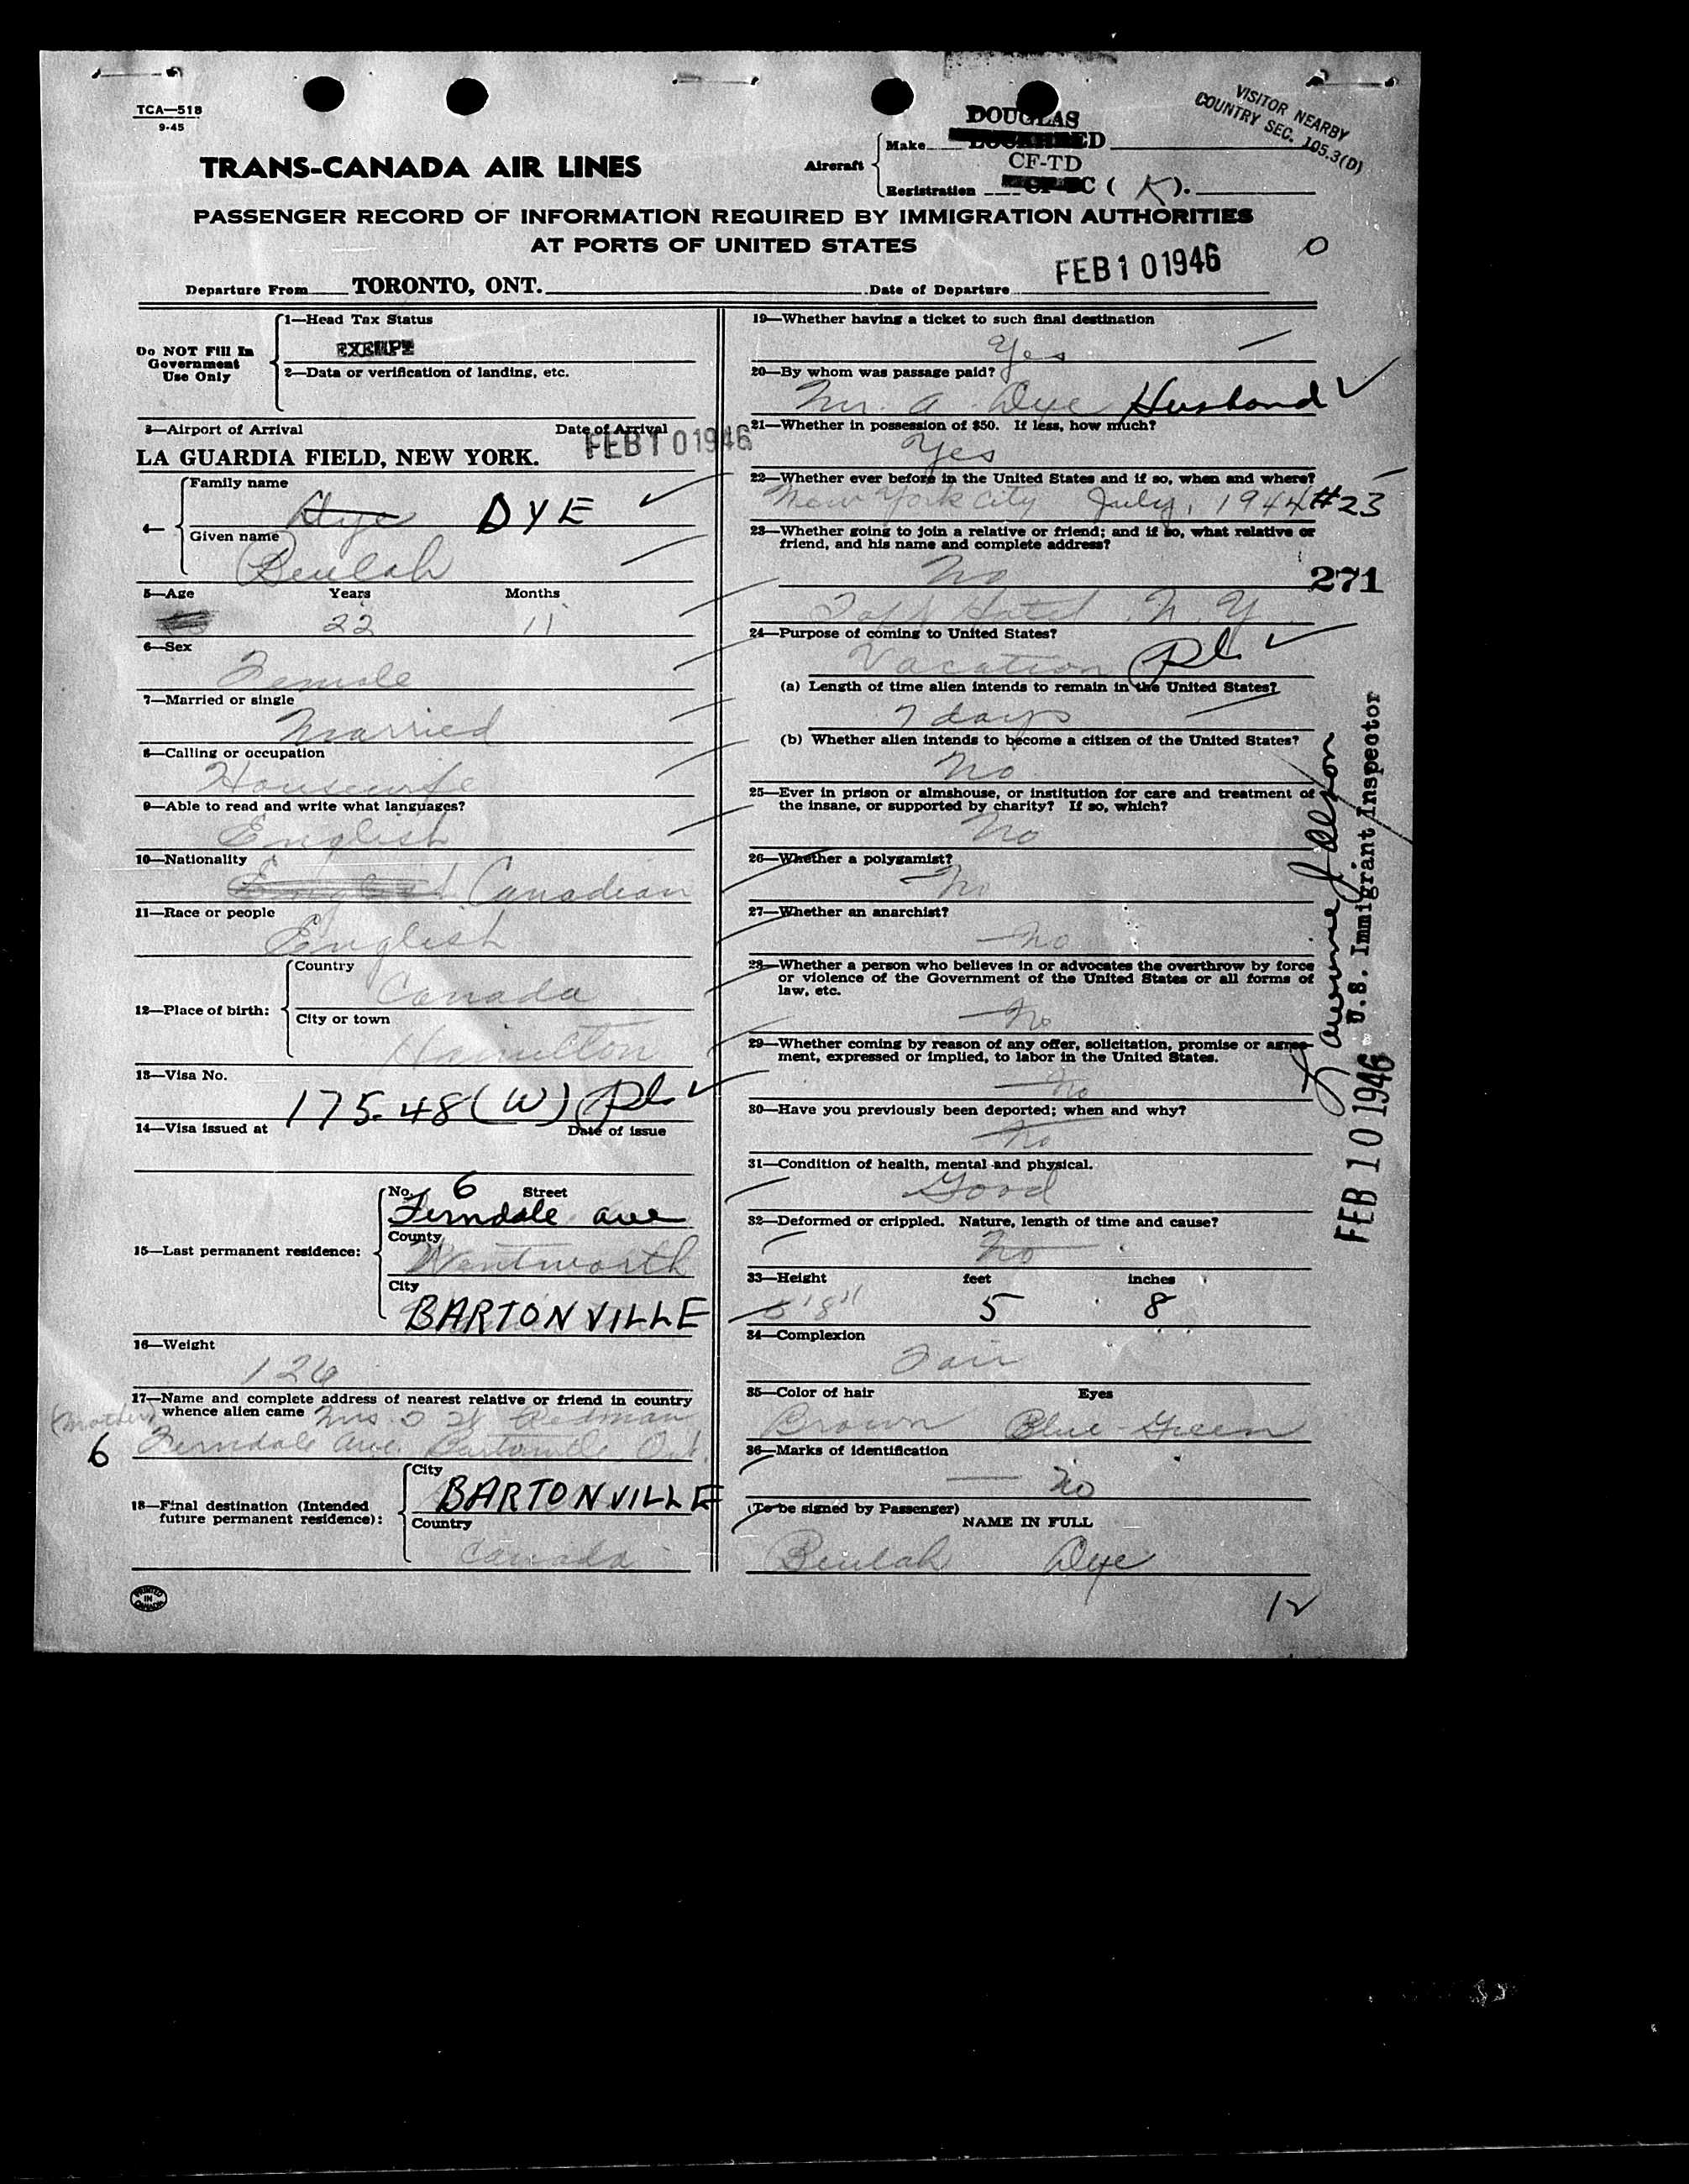 TCA—51B
9-45
VISITOR NEARBY
COUNTRY SEC. 105.3(D)
TRANS-CANADA AIR LINES
Aircraft
Make
DOUGLAS
CF-TD
Registration C ( K ).
PASSENGER RECORD OF INFORMATION REQUIRED BY IMMIGRATION AUTHORITIES
AT PORTS OF UNITED STATES
O
Departure From TORONTO, ONT. Date of Departure FEB 10 1946
Do NOT Fill In
Government
Use Only
1—Head Tax Status
EXEMPT
2—Data or verification of landing, etc.
3—Airport of Arrival Date of Arrival
LA GUARDIA FIELD, NEW YORK. FEB 10 1946
4—
Family name
Dye DYE
Given name
Beulah
5—Age Years Months
22 11
6—Sex
Female
7—Married or single
Married
8—Calling or occupation
Housewife
9—Able to read and write what languages?
English
10—Nationality
English Canadian
11—Race or people
English
12—Place of birth:
Country
Canada
City or town
Hamilton
13—Visa No.
175.48 (W)
14—Visa issued at Date of issue
15—Last permanent residence:
No. 6 Street
Ferndale ave
County
Wentworth
City
BARTONVILLE
16—Weight
126
17—Name and complete address of nearest relative or friend in country
whence alien came Mrs. Redman
(Mother)
6 Ferndale Ave. Bartonville Ont.
18—Final destination (Intended
future permanent residence):
City
BARTONVILLE
Country
Canada
PRINTED
IN
CANADA
19—Whether having a ticket to such final destination
Yes
20—By whom was passage paid?
Mr. A. Dye Husband
21—Whether in possession of $50. If less, how much?
Yes
22—Whether ever before in the United States and if so, when and where?
New York City July, 1944 #23
23—Whether going to join a relative or friend; and if so, what relative or
friend, and his name and complete address?
No
271
Taft Hotel, N.Y.
24—Purpose of coming to United States?
Vacation
(a) Length of time alien intends to remain in the United States?
7 days
(b) Whether alien intends to become a citizen of the United States?
No
25—Ever in prison or almshouse, or institution for care and treatment of
the insane, or supported by charity? If so, which?
No
26—Whether a polygamist?
No
27—Whether an anarchist?
No
28—Whether a person who believes in or advocates the overthrow by force
or violence of the Government of the United States or all forms of
law, etc.
No
29—Whether coming by reason of any offer, solicitation, promise or agree-
ment, expressed or implied, to labor in the United States.
No
30—Have you previously been deported; when and why?
No
31—Condition of health, mental and physical.
Good
32—Deformed or crippled. Nature, length of time and cause?
No
33—Height feet inches
5'8" 5 8
34—Complexion
Fair
35—Color of hair Eyes
Brown Blue-Green
36—Marks of identification
No
(To be signed by Passenger)
NAME IN FULL
Beulah Dye
12
U.S. Immigrant Inspector
FEB 10 1946